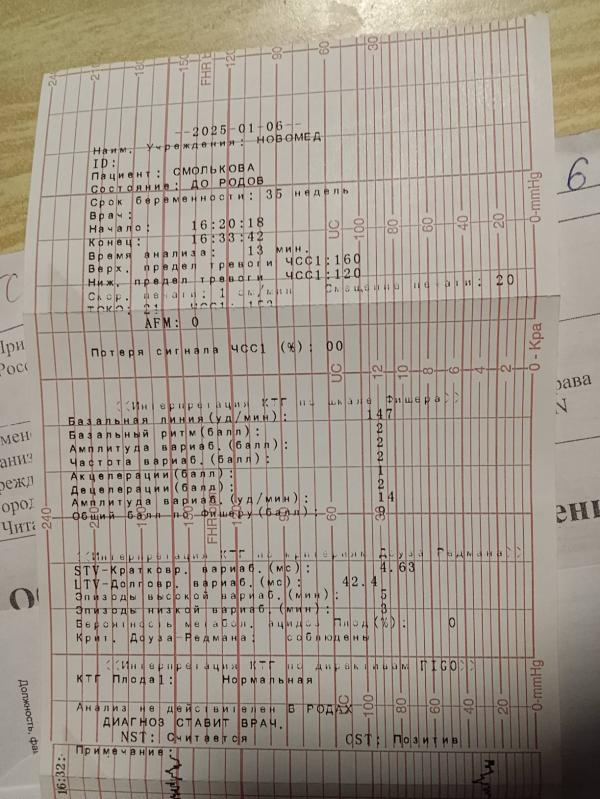 240 210 180 150 120 90 60 30
FHR
--2025-01-06--
Наим. Учреждения: НОВОМЕД
ID:
Пациент: СМОЛЬКОВА
Состояние: ДО РОДОВ
Срок беременности: 35 недель
Врач:
Начало: 16:20:18
Конец: 16:33:42
Время анализа: 13 мин.
Верх. предел тревоги ЧСС1:160
Ниж. предел тревоги ЧСС1:120
Скор. печати: 1 см/мин Смещение печати: 20
AFM: 0
Потеря сигнала ЧСС1 (%): 00
UC 100 80 60 40 20 0-mmHg
UC 12 10 8 6 4 2 0-Kpa
<<Интерпретация КТГ по шкале Фишера>>
Базальная линия(уд/мин): 147
Базальный ритм(балл): 2
Амплитуда вариаб.(балл): 2
Частота вариаб.(балл): 2
Акцелерации(балл): 1
Децелерации(балл): 2
Амплитуда вариаб.(уд/мин): 14
Общий балл по Фишеру(балл): 9
240 210 180 150 120 90 60 30
FHR
<<Интерпретация КТГ по критериям Доуза Редмана>>
STV-Кратковр. вариаб.(мс): 4.63
LTV-Долговр. вариаб.(мс): 42.4
Эпизоды высокой вариаб.(мин): 5
Эпизоды низкой вариаб.(мин): 3
Вероятность метабол. ацидоз Плод(%): 0
Крит. Доуза-Редмана: соблюдены
<<Интерпретация КТГ по директивам FIGO>>
КТГ Плода1: Нормальная
Анализ не действителен В РОДАХ
ДИАГНОЗ СТАВИТ ВРАЧ.
NST: Считается CST: Позитив
Примечание:
UC 100 80 60 40 20 0-mmHg
16:32:
6
рава
N
Чита
Должность,